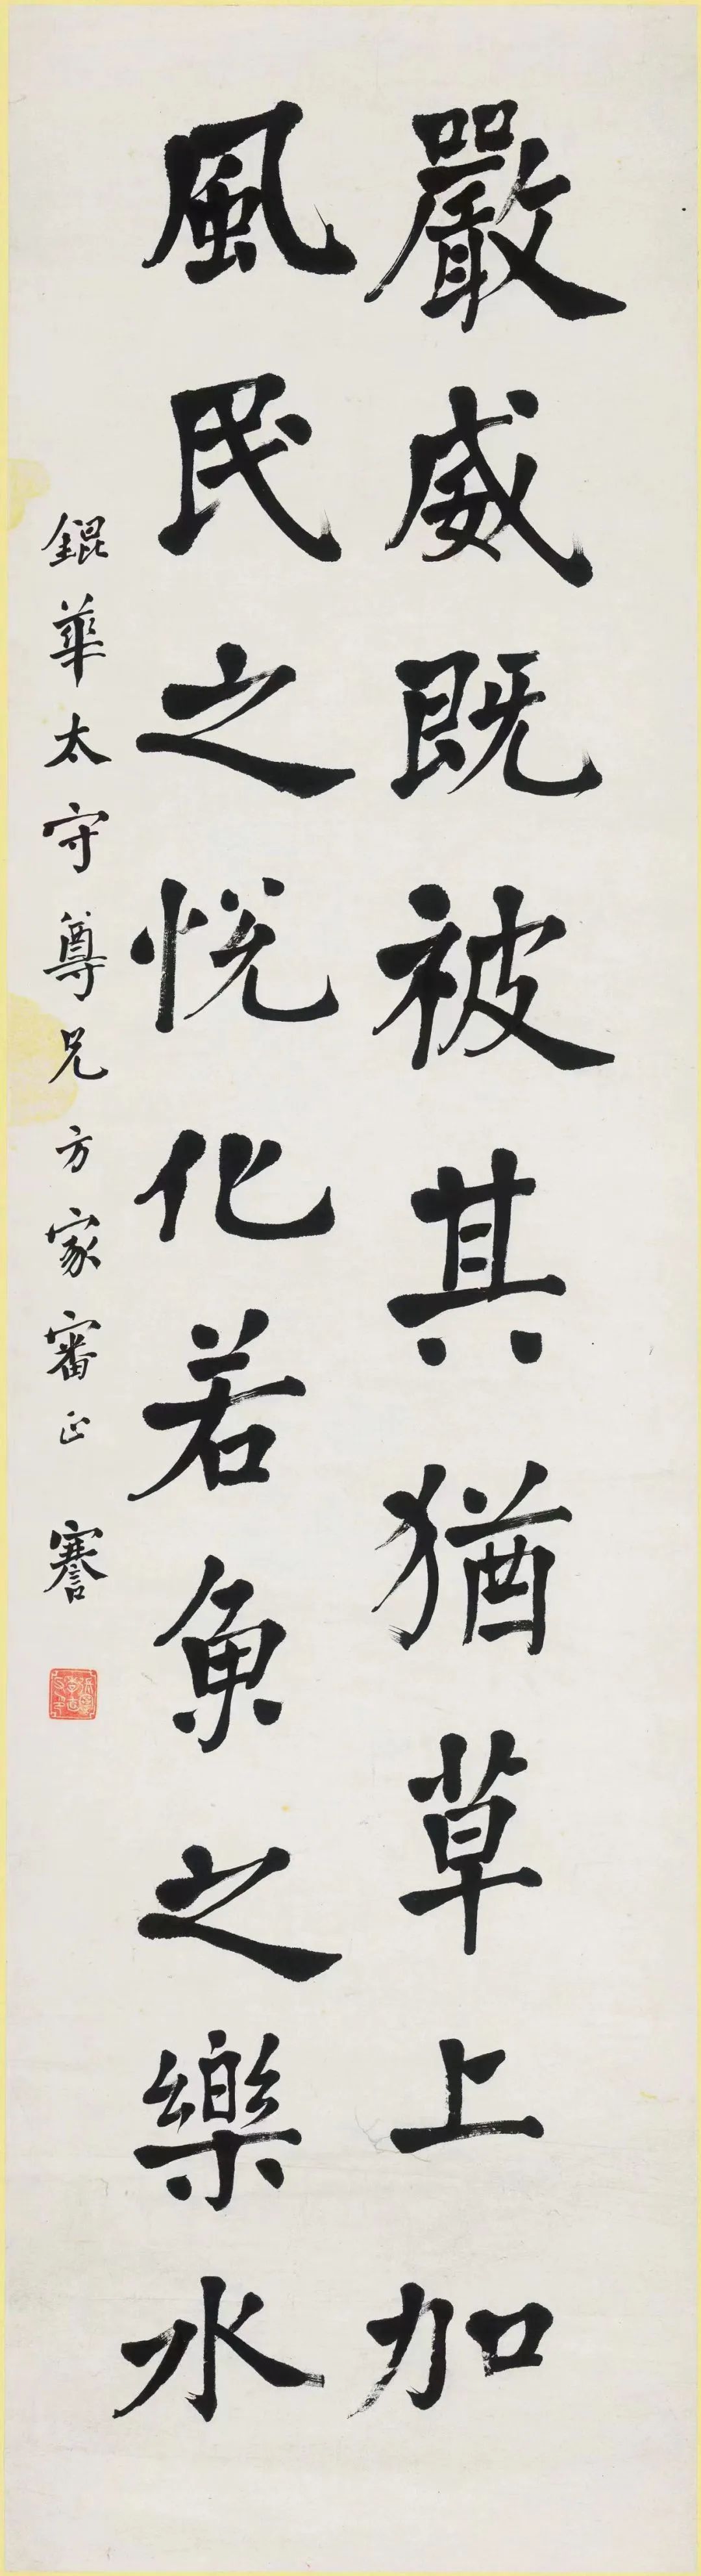 嚴威既被其猶草上加
風民之悅化若魚之樂水
錕華太守尊兄方家審正 謇